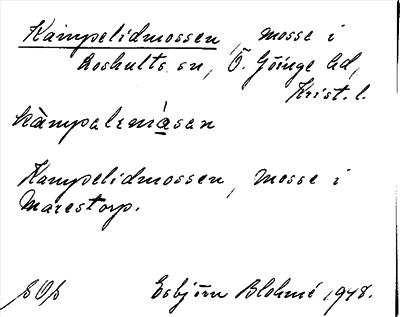 Kampelidmossen, mosse i
Loshults sn, Ö. Göinge hd,
Krist. l.
kàmpalemåsen
Kampelidmossen, mosse i
Marestorp.
Esbjörn Blohmé 1948.